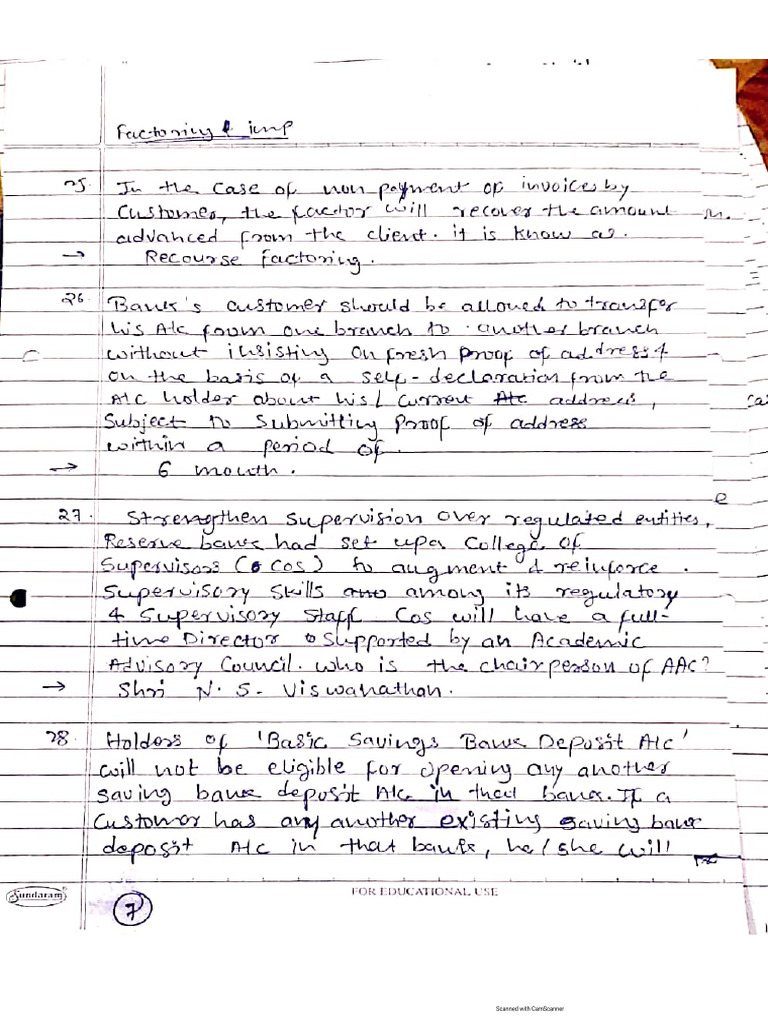 Factoring & imp
25. In the case of non payment of invoices by
Customer, the factor will recover the amount
advanced from the client. it is know as.
→ Recourse factoring.
26. Bank's customer should be allowed to transfer
his A/c from one branch to another branch
without insisting on fresh proof of address &
on the basis of a self-declaration from the
A/C holder about his/ current A/c address,
Subject to Submitting proof of address
within a period of.
→ 6 month.
27. Strengthen supervision over regulated entities,
Reserve bank had set upa College of
Supervisors (COS) to augment & reinforce.
Supervisory Skills among its regulatory
& Supervisory staff Cos will have a full-
time Director Supported by an Academic
Advisory Council. who is the chairperson of AAC?
→ Shri N. S. Viswanathan.
28. Holders of 'Basic Savings Bank Deposit A/c'
will not be eligible for opening any another
Saving bank deposit A/c in that bank. If a
Customer has any another existing saving bank
deposit A/c in that bank, he/she will
Sundaram
FOR EDUCATIONAL USE
7
Scanned with CamScanner